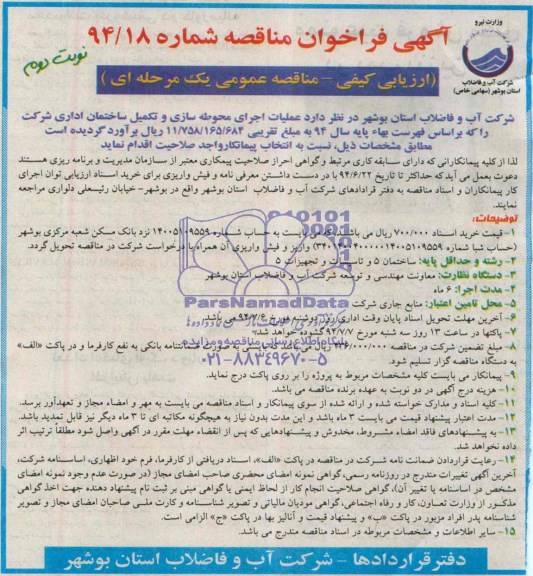 وزارت نیرو
شرکت آب و فاضلاب
استان بوشهر (سهامی خاص)
آگهی فراخوان مناقصه شماره ۹۴/۱۸
نوبت دوم
(ارزیابی کیفی - مناقصه عمومی یک مرحله ای)
شرکت آب و فاضلاب استان بوشهر در نظر دارد عملیات اجرای محوطه سازی و تکمیل ساختمان اداری شرکت
را که براساس فهرست بهاء پایه سال ۹۴ به مبلغ تقریبی ۱۱/۷۵۸/۱۶۵/۶۸۴ ریال برآورد گردیده است
مطابق مشخصات ذیل، نسبت به انتخاب پیمانکار واجد صلاحیت اقدام نماید
لذا از کلیه پیمانکارانی که دارای سابقه کاری مرتبط و گواهی احراز صلاحیت پیمکاری معتبر از سازمان مدیریت و برنامه ریزی هستند
دعوت بعمل می آید که حداکثر تا تاریخ ۹۴/۶/۲۲ با در دست داشتن معرفی نامه و فیش واریزی برای خرید اسناد ارزیابی توان اجرای
کار پیمانکاران و اسناد مناقصه به دفتر قراردادهای شرکت آب و فاضلاب استان بوشهر واقع در بوشهر- خیابان رئیسعلی دلواری مراجعه
نمایند.
توضیحات:
۱- قیمت خرید اسناد ۷۰۰/۰۰۰ ریال می باشد که می بایست به حساب شماره ۱۴۰۰۵۱۰۹۵۵۹ نزد بانک مسکن شعبه مرکزی بوشهر
(حساب شبا شماره) واریز و فیش واریزی آن همراه با درخواست شرکت در مناقصه تحویل گردد.
۲- رشته و حداقل پایه: ساختمان ۵ و تاسیسات و تجهیزات ۵
۳- دستگاه نظارت: معاونت مهندسی و توسعه شرکت آب و فاضلاب استان بوشهر
۴- مدت اجرا: ۶ ماه
۵- محل تامین اعتبار: منابع جاری شرکت
۶- آخرین مهلت تحویل اسناد پایان وقت اداری روز دوشنبه مورخ ۹۴/۷/۶ می باشد.
۷- پاکتها در ساعت ۱۳ روز سه شنبه مورخ ۹۴/۷/۷ گشوده خواهد شد.
۸- مبلغ تضمین شرکت در مناقصه ریال می باشد که بایستی به صورت ضمانتنامه بانکی به نفع کارفرما و در پاکت «الف»
به دستگاه مناقصه گزار تسلیم شود.
۹- پیمانکار می بایست کلیه مشخصات مربوط به پروژه را بر روی پاکت درج نماید.
۱۰- هزینه درج آگهی در دو نوبت به عهده برنده مناقصه می باشد.
۱۱- کلیه اسناد و مدارک خواسته شده و ارائه شده از سوی پیمانکار و اسناد مناقصه می بایست به مهر و امضاء مجاز و تعهدآور برسد.
۱۲- مدت اعتبار پیشنهاد قیمت می بایست ۳ ماه باشد و این مدت بدون نیاز به هیچگونه مکاتبه ای تا ۳ ماه دیگر نیز قابل تمدید باشد.
۱۳- به پیشنهادهای فاقد امضاء مشروط، مخدوش و پیشنهادهایی که پس از انقضاء مهلت مقرر در آگهی واصل شود مطلقاً ترتیب اثر
داده نخواهد شد.
۱۴- رعایت قراردادن ضمانت نامه شرکت در مناقصه در پاکت «الف»، اسناد دریافتی از کارفرما، فرم خود اظهاری، اساسنامه شرکت،
آخرین آگهی تغییرات مندرج در روزنامه رسمی، گواهی نمونه امضای محضری صاحب امضای مجاز (در صورت عدم وجود نمونه امضای
مشخص در اساسنامه یا تغییر آن)، گواهی صلاحیت انجام کار از لحاظ ایمنی یا گواهی مبنی بر ثبت نام پیشنهاد دهنده جهت اخذ گواهی
مذکور از وزارت تعاون، کار و رفاه اجتماعی، گواهی مودیان مالیاتی و تصویر شناسنامه و کارت ملی صاحبان امضای مجاز و تصویر
شناسنامه پدر افراد مزبور در پاکت «ب» و پیشنهاد قیمت و آنالیز بها در پاکت «ج» الزامی است.
۱۵- سایر اطلاعات و مشخصات مربوطه در اسناد مناقصه مندرج می باشد.
دفتر قراردادها - شرکت آب و فاضلاب استان بوشهر
ParsNamadData
پایگاه اطلاع رسانی مناقصه و مزایده
۰۲۱-۸۸۳۴۹۶۷۰-۵